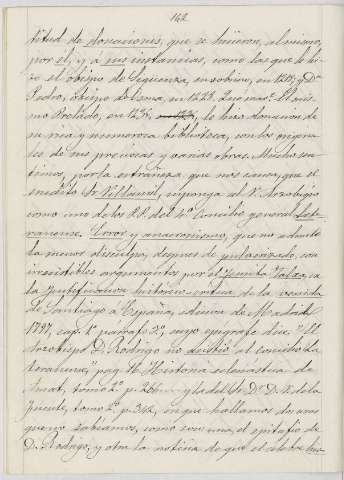 142
titud de donaciones, que se hicieron, al mismo,
por él, y á sus instancias, como las que le hi-
zo el obispo de Sigüenza, su sobrino, en 1218, y Dn.
Pedro, obispo de Osma, en 1223. El mis-
mo Prelado, en 1235, le hizo donacion de
su rica y numerosa biblioteca, con los origina-
les de sus preciosas y varias obras. Mucho sen-
timos, por la estrañeza, que nos causa, que el
inedito Sr. Villamil, suponga al V. Arzobispo
como uno de los PP. del 4º Concilio general Late-
ranense. Error y anacronismo, que no admite
la menor disculpa, despues de pulverizado, con
irresistibles argumentos por el Jesuita Tolrá, en
la Justificacion historico-critica de la venida
de Santiago á España, edicion de Madrid
1797, cap. 1º parrafo 2º, cuyo epigrafe dice: "El
Arzobispo D. Rodrigo no asistió al concilio La-
teranense", pag. 16. Historia eclesiastica de
Amat, tomo 2º p. 266 y la del Sr. Dr. D. V. de la
Fuente, tomo 2º p. 342, en que hallamos
que ya sabiamos, como son una, el epitafio de
D. Rodrigo, y otra la noticia de que el celebre